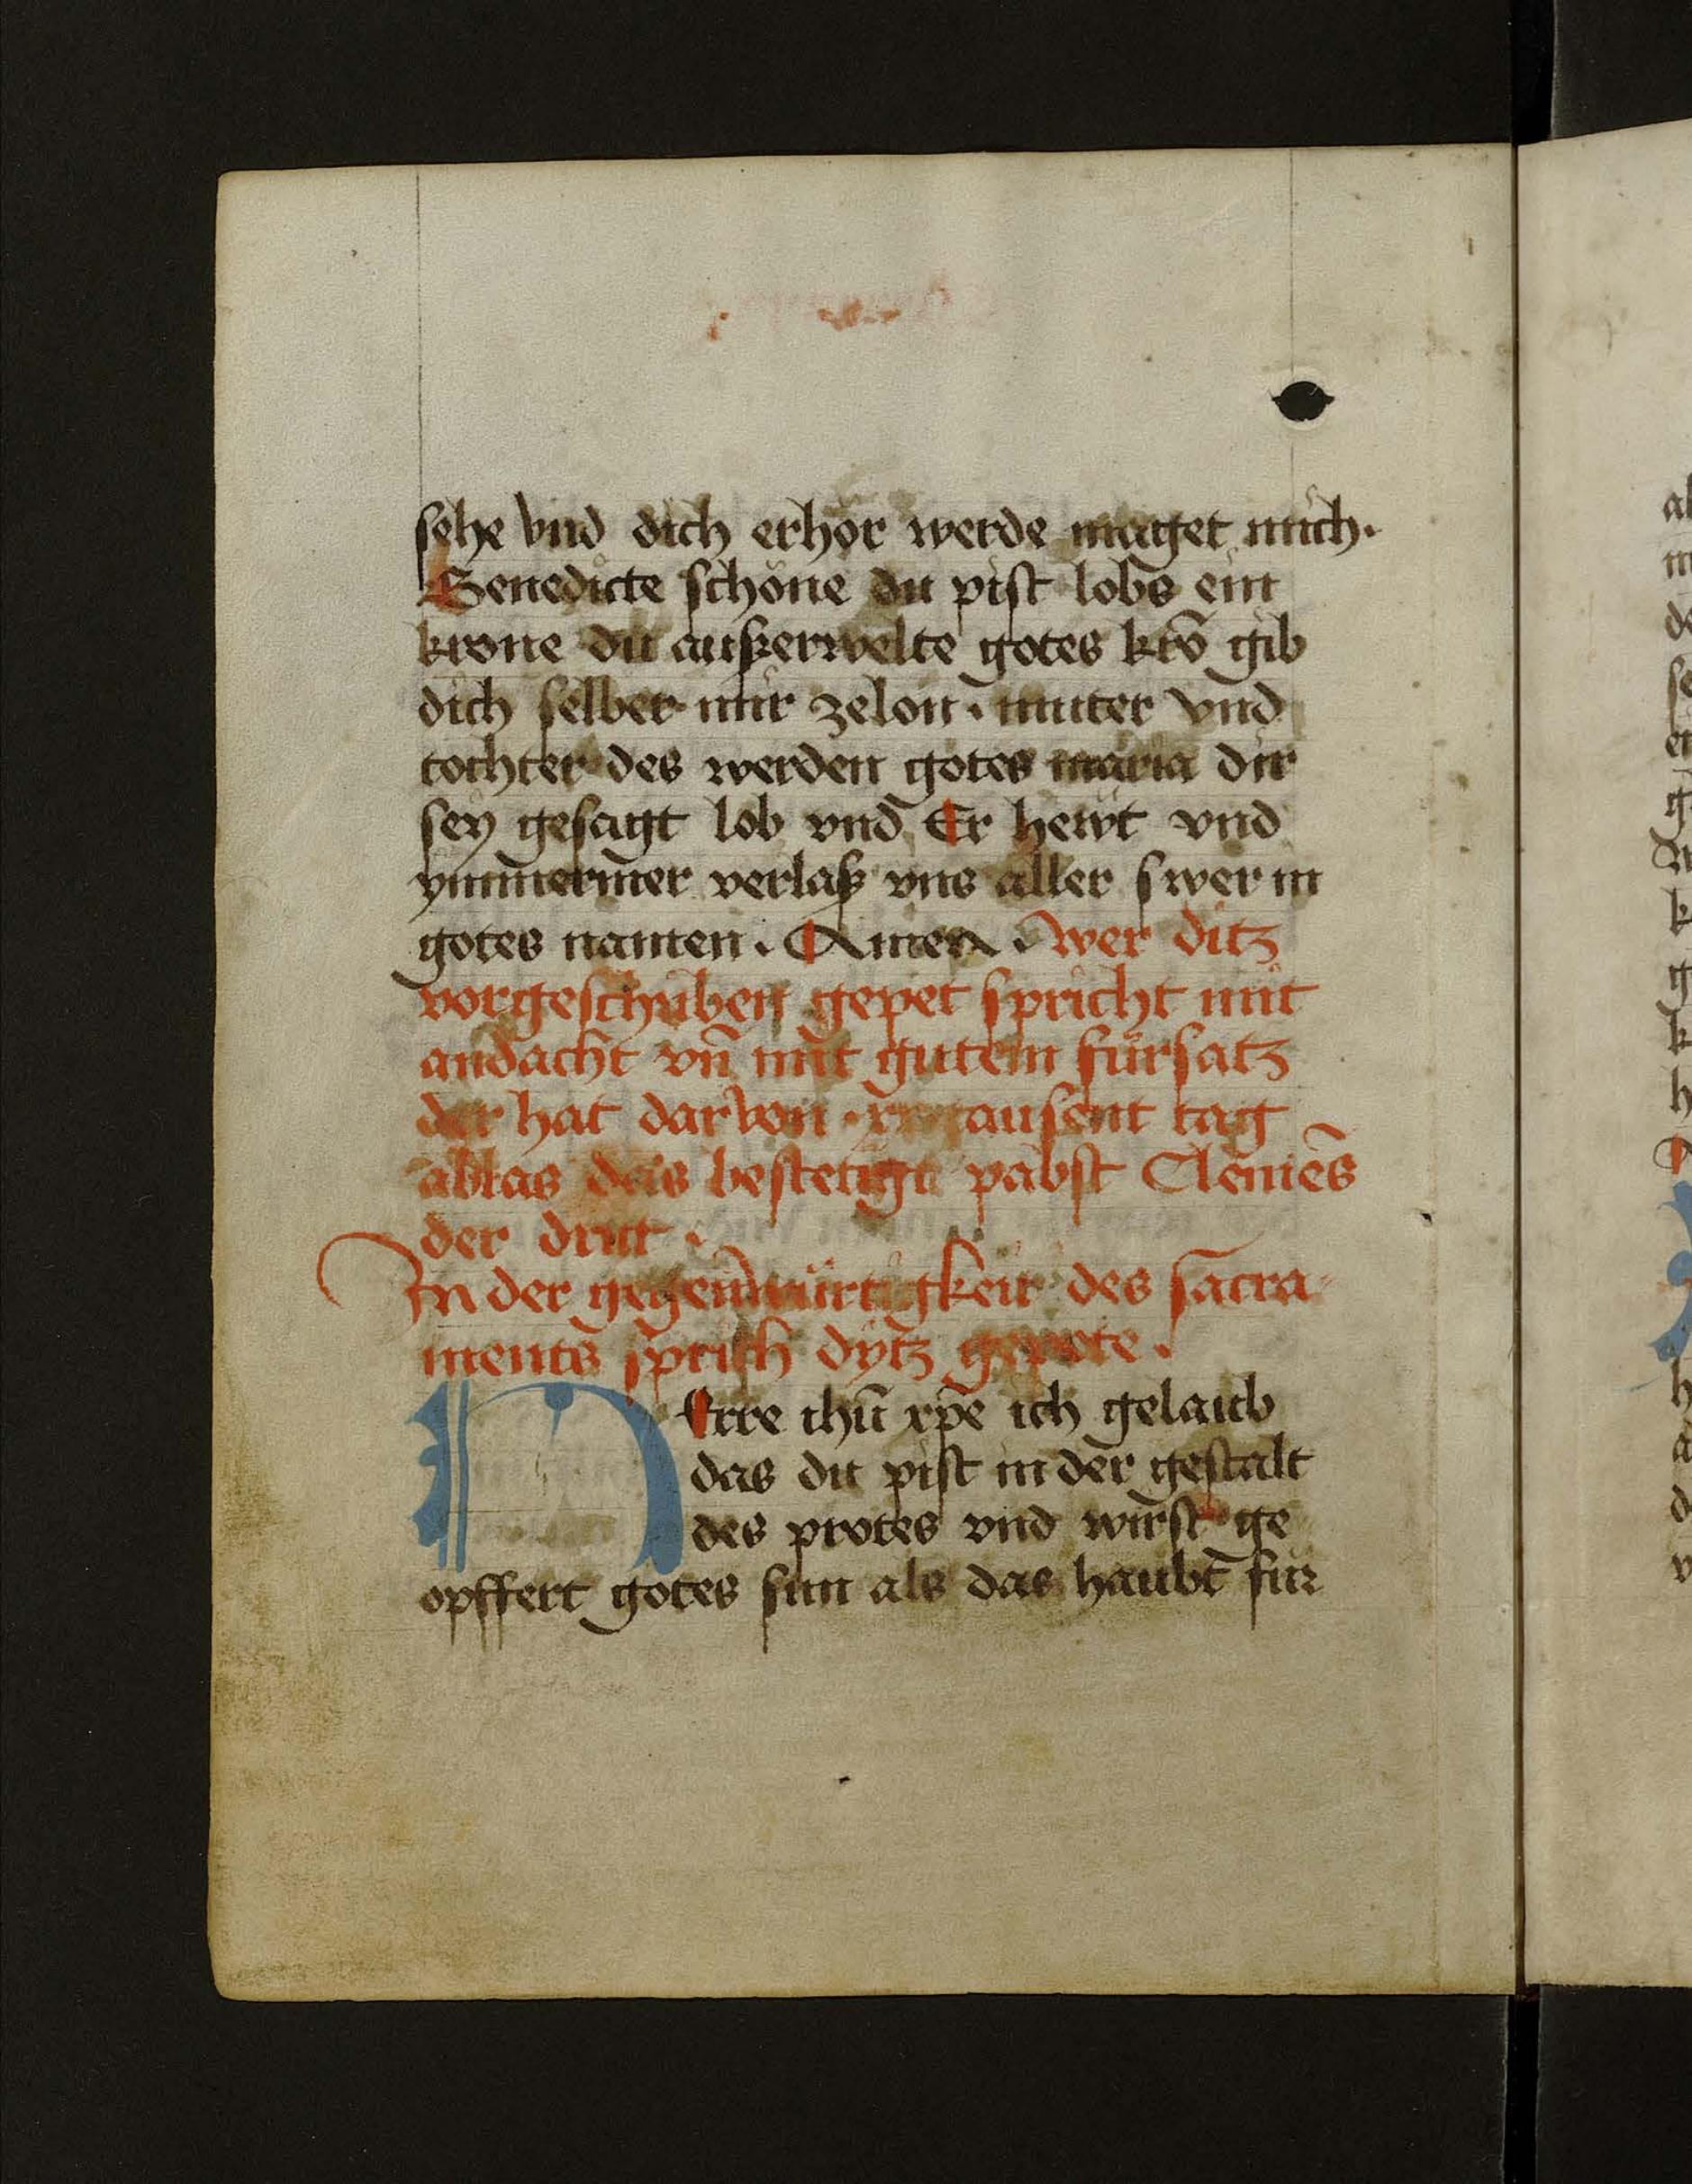 sehe vnd dich erhör werde maget mich.
Benedicte schöne du pist lobs ein
krone du außerwelte gotes krō gib
dich selber mir zelon. muter vnd
tochter des werden gotes maria dir
seÿ gesagt lob vnd Er hewt vnd
ymmermer verlaß vns aller swer in
gotes namen. Amen. wer ditz
vorgeschriben gepet spricht mit
andacht vn̄ mit gutem fürsatz
der hat darvon tausent tag
ablas das bestetigt pabst Clemēs
der dritt.
In der gegenwürtigkeit des sacra
ments sprich dÿtz gepete.
HErre ihū xp̄e ich gelaub
das du pist in der gestalt
des protes vnd wirst ge
opffert gotes sun als das haubt für